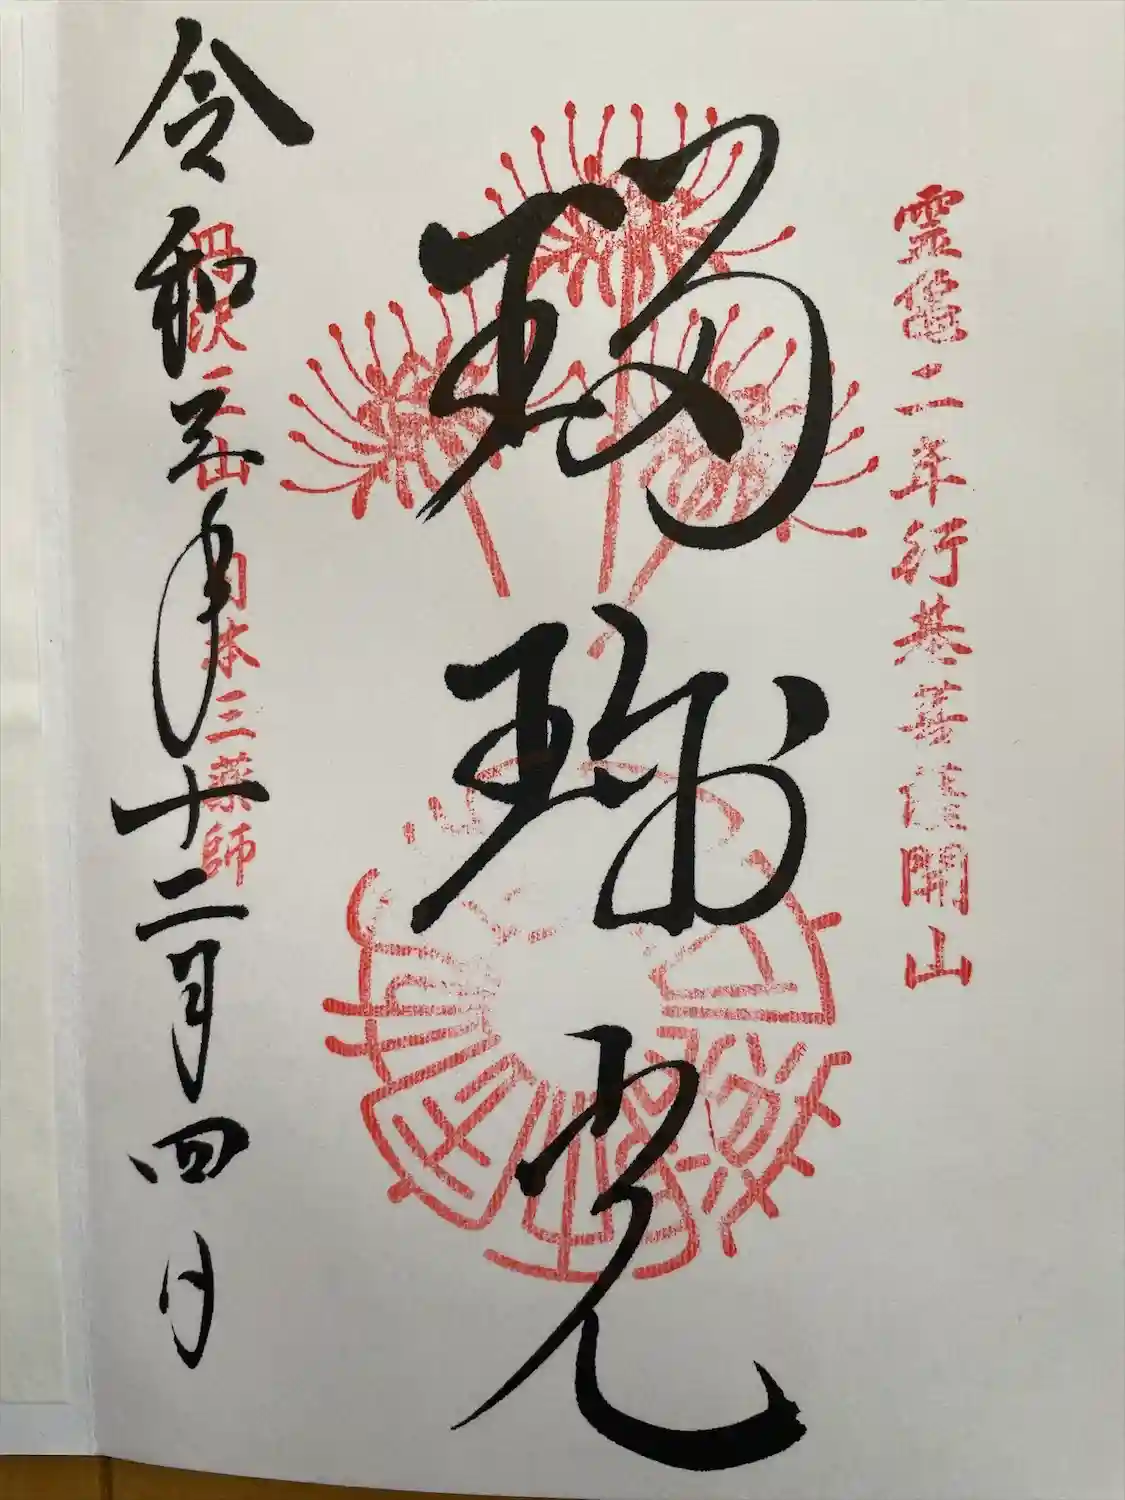 霊亀二年行基菩薩開山
瑠璃光
日本三薬師
令和三年十二月四日